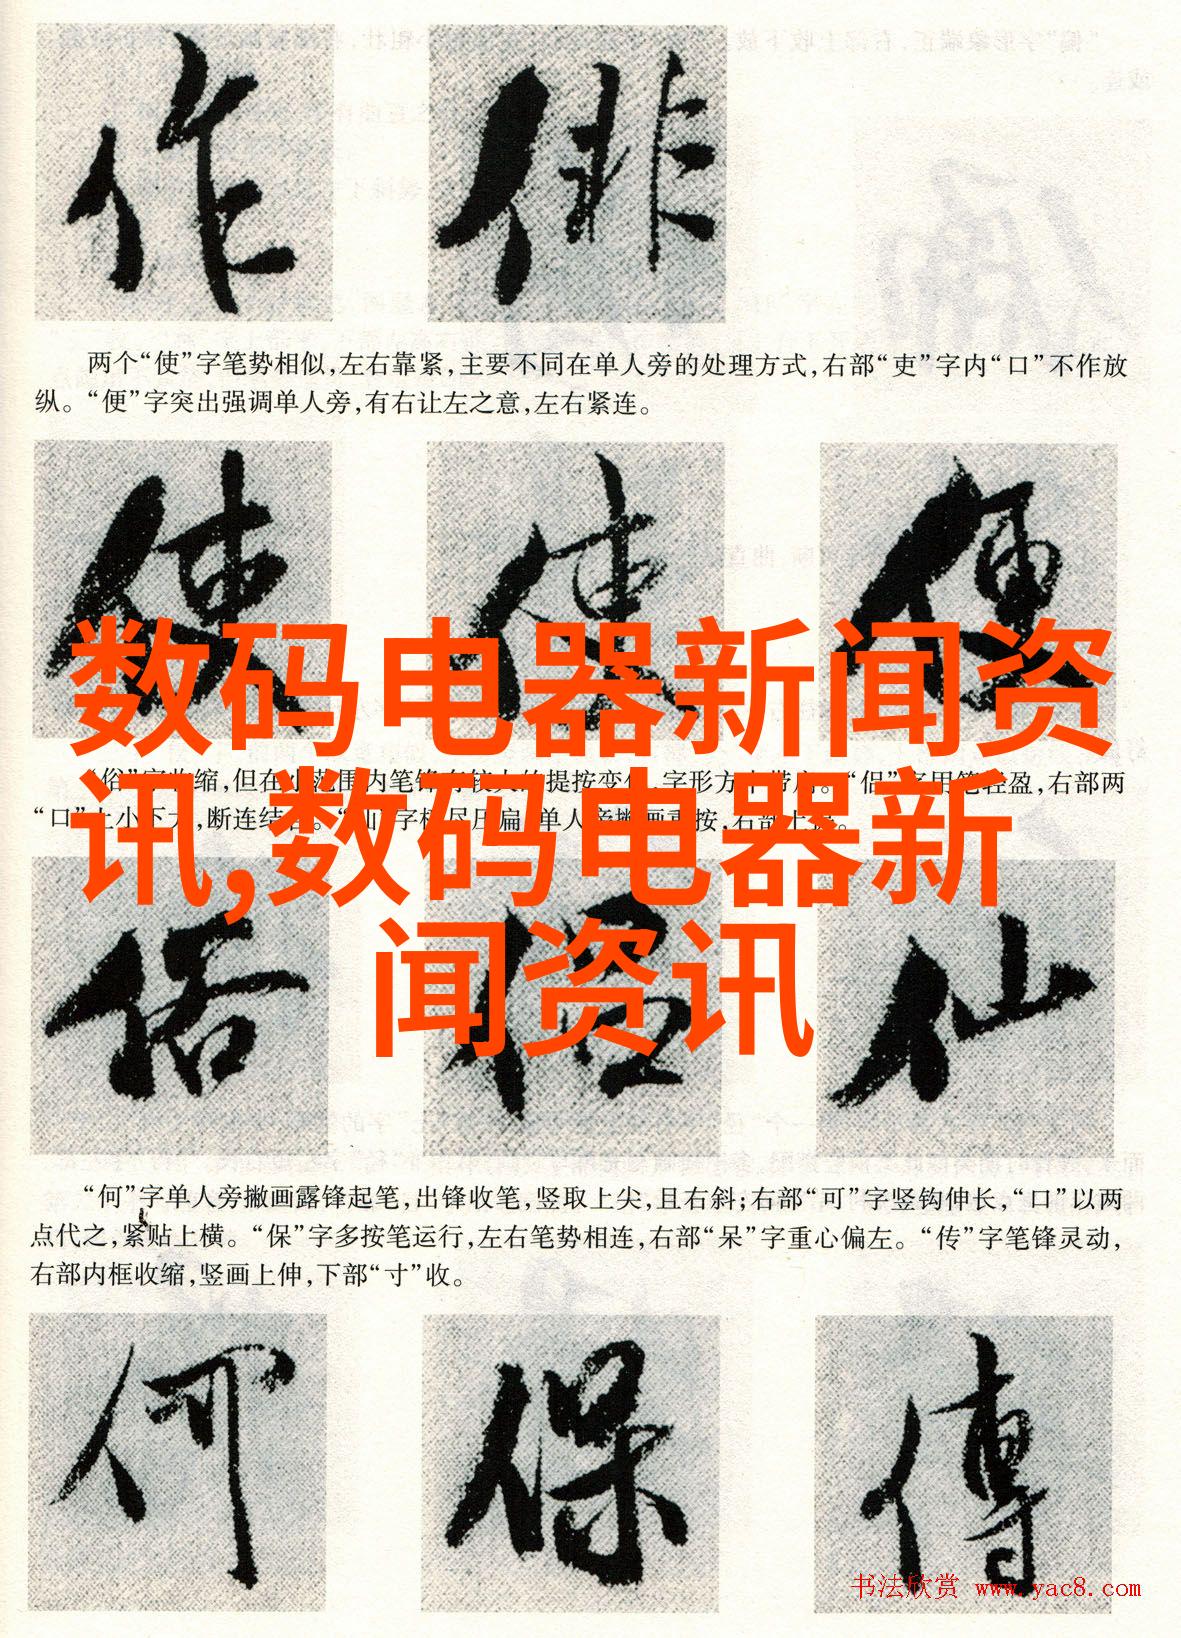 作 俳
两个“使”字笔势相似,左右靠紧,主要不同在单人旁的处理方式,右部“吏”字内“口”不作放
纵。“便”字突出强调单人旁,有右让左之意,左右紧连。
使 使 便
数码电器新闻资
讯,数码电器新
闻资讯
“俗”字收缩,但在小范围内笔锋有较大的提按变化,字形方中带扁。“侣”字用笔轻盈,右部两
“口”上小下大,断连结合。“仙”字横尽压扁,单人旁撇画重按,右部上提。
俗 侣 仙
“何”字单人旁撇画露锋起笔,出锋收笔,竖取上尖,且右斜;右部“可”字竖钩伸长,“口”以两
点代之,紧贴上横。“保”字多按笔运行,左右笔势相连,右部“呆”字重心偏左。“传”字笔锋灵动,
右部内框收缩,竖画上伸,下部“寸”收。
何 保 傳
书法欣赏 www.yac8.com